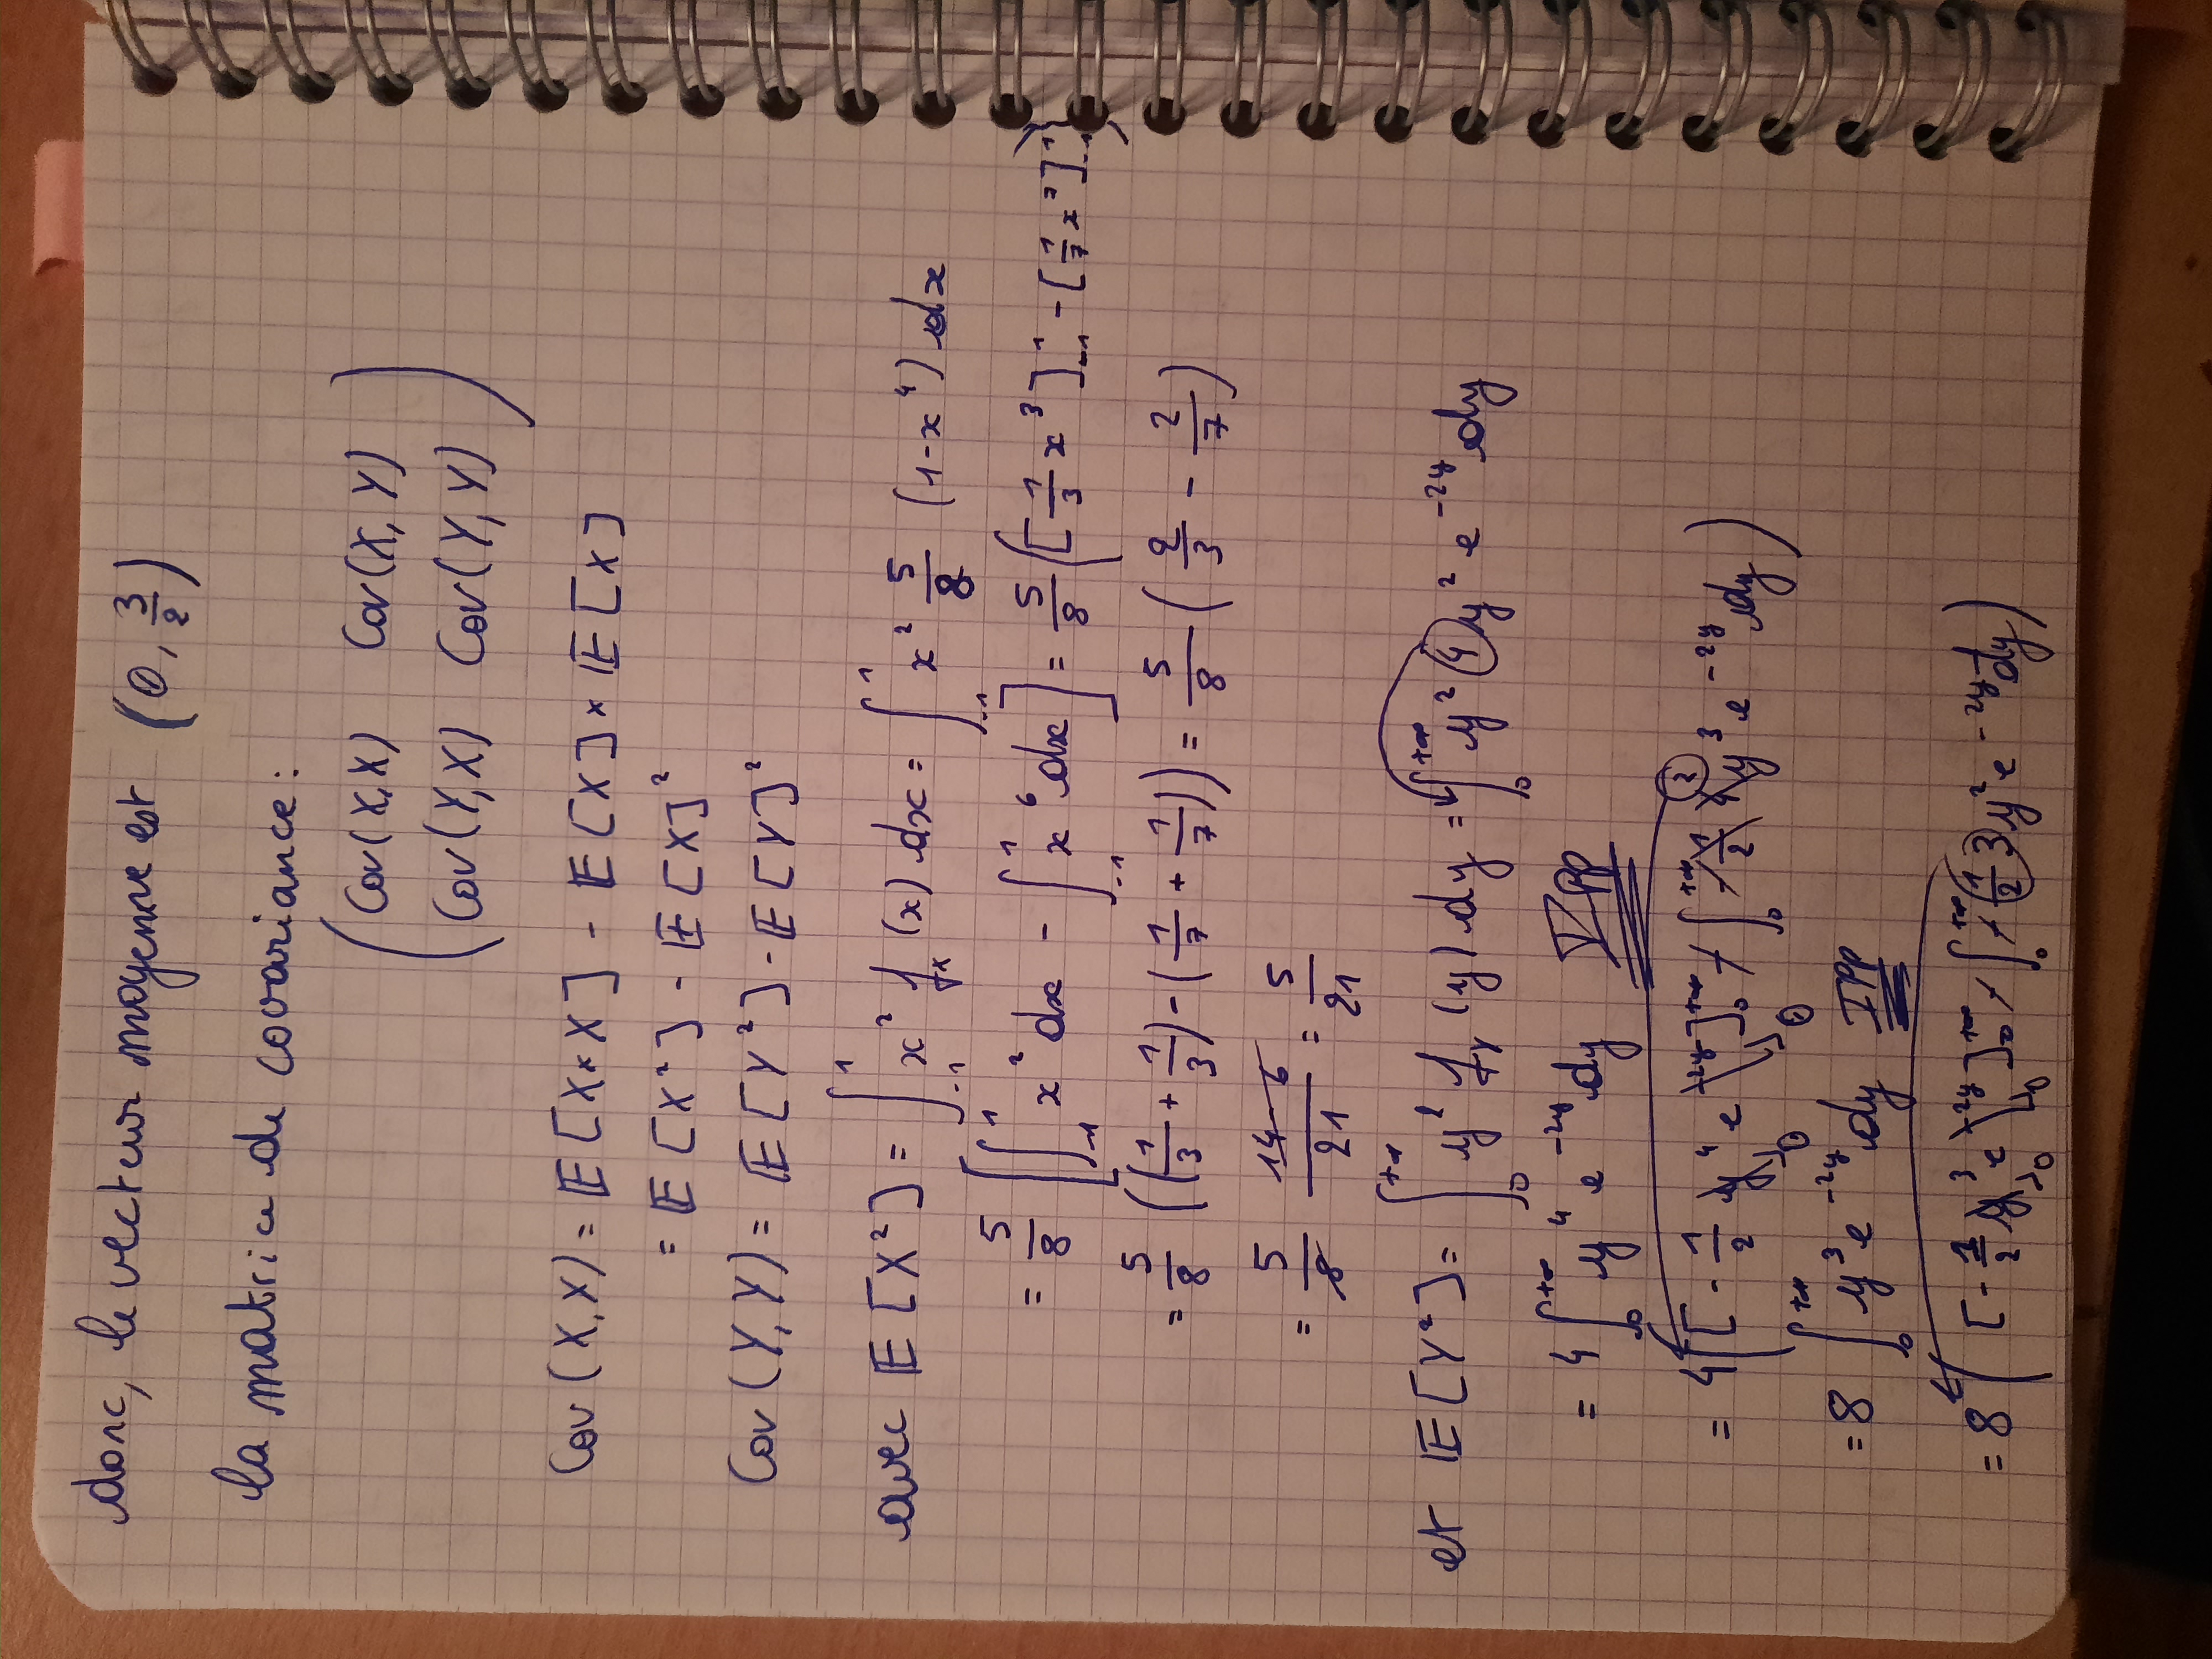 donc, le vecteur moyenne est (0, 3/2)
la matrice de covariance :
( Cov(X,X) Cov(X,Y)
Cov(Y,X) Cov(Y,Y) )
Cov(X,X) = E[X×X] - E[X]×E[X]
= E[X²] - E[X]²
Cov(Y,Y) = E[Y²] - E[Y]²
avec E[X²] = ∫_{-1}^{1} x² f_X(x) dx = ∫_{-1}^{1} x² 5/8 (1-x⁴) dx
= 5/8 [∫_{-1}^{1} x² dx - ∫_{-1}^{1} x⁶ dx] = 5/8 ([1/3 x³]_{-1}^{1} - [1/7 x⁷]_{-1}^{1})
= 5/8 ((1/3 + 1/3) - (1/7 + 1/7)) = 5/8 (2/3 - 2/7)
= 5/8 (14-6)/21 = 5/21
et E[Y²] = ∫_0^{+∞} y² f_Y(y) dy = ∫_0^{+∞} y² 4 y² e^{-2y} dy
= 4 ∫_0^{+∞} y⁴ e^{-2y} dy IPP
= 4 ([-1/2 y⁴ e^{-2y}]_0^{+∞} - ∫_0^{+∞} -1/2 4 y³ e^{-2y} dy) 2 →0 →0
= 8 ∫_0^{+∞} y³ e^{-2y} dy IPP
= 8 ([-1/2 y³ e^{-2y}]_0^{+∞} - ∫_0^{+∞} -1/2 3 y² e^{-2y} dy) →0 →0